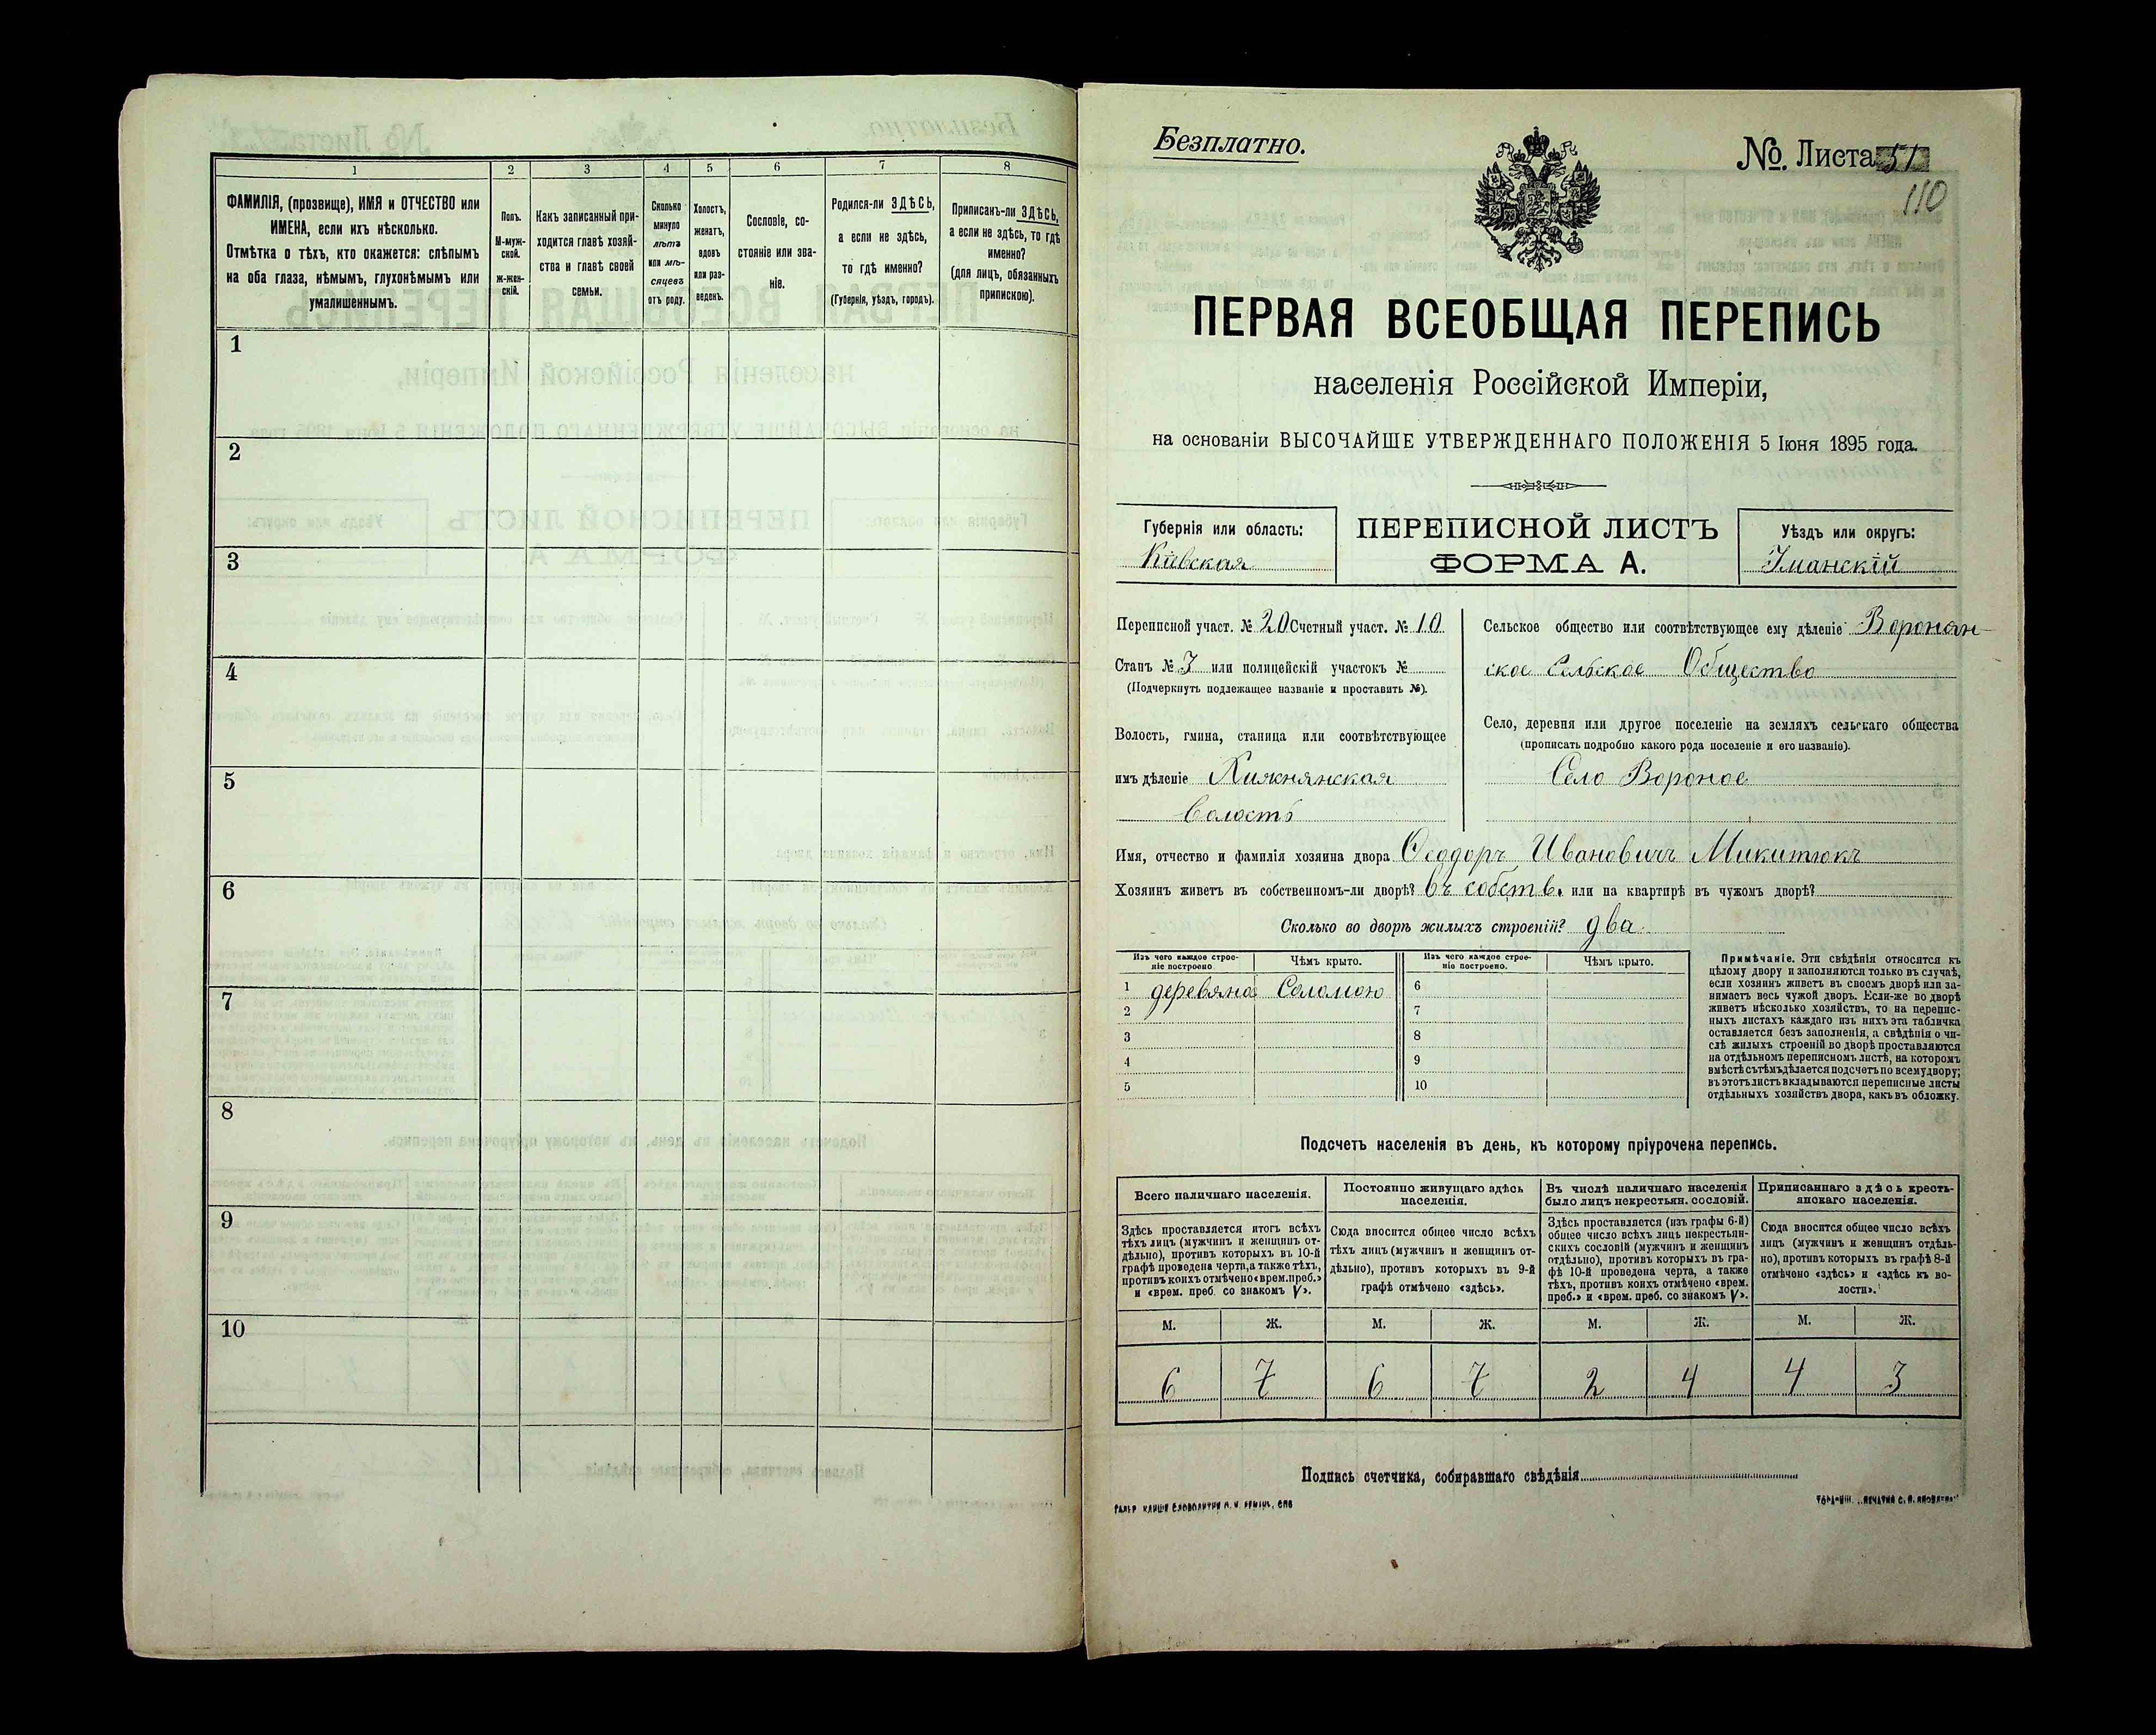 1
2
3
4
5
6
7
8
ФАМИЛІЯ, (прозвище), ИМЯ и ОТЧЕСТВО или
ИМЕНА, если ихъ нѣсколько.
Отмѣтка о тѣхъ, кто окажется: слѣпымъ
на оба глаза, нѣмымъ, глухонѣмымъ или
умалишеннымъ.
Полъ.
М-муж-
ской.
Ж-жен-
скій.
Какъ записанный при-
ходится главѣ хозяй-
ства и главѣ своей
семьи.
Сколько
минуло
лѣтъ
или мѣ-
сяцевъ
отъ роду.
Холостъ,
женатъ,
вдовъ
или раз-
веденъ.
Сословіе, со-
стояніе или зва-
ніе.
Родился-ли ЗДѢСЬ,
а если не здѣсь,
то гдѣ именно?
(Губернія, уѣздъ, городъ).
Приписанъ-ли ЗДѢСЬ,
а если не здѣсь, то гдѣ
именно?
(для лицъ, обязанныхъ
припискою).
1
2
3
4
5
6
7
8
9
10
Безплатно.
№. Листа 51
110
ПЕРВАЯ ВСЕОБЩАЯ ПЕРЕПИСЬ
населенія Россійской Имперіи,
на основаніи ВЫСОЧАЙШЕ УТВЕРЖДЕННАГО ПОЛОЖЕНІЯ 5 Іюня 1895 года.
Губернія или область:
Кіевская
ПЕРЕПИСНОЙ ЛИСТЪ
ФОРМА А.
Уѣздъ или округъ:
Уманскій
Переписной участ. № 20 Счетный участ. № 10
Станъ № 3 или полицейскій участокъ №
(Подчеркнуть подлежащее названіе и проставить №).
Волость, гмина, станица или соотвѣтствующее
имъ дѣленіе Кижнянская
волость
Сельское общество или соотвѣтствующее ему дѣленіе Воронян-
ское Сельское Общество
Село, деревня или другое поселеніе на земляхъ сельскаго общества
(прописать подробно какого рода поселеніе и его названіе).
Село Вороное
Имя, отчество и фамилія хозяина двора Ѳеодоръ Ивановичъ Микитюкъ
Хозяинъ живетъ въ собственномъ-ли дворѣ? въ собств. или на квартирѣ въ чужомъ дворѣ?
Сколько во дворѣ жилыхъ строеній? два
Изъ чего каждое строе-
ніе построено.
Чѣмъ крыто.
Изъ чего каждое строе-
ніе построено.
Чѣмъ крыто.
1 деревяна Соломою
2
3
4
5
6
7
8
9
10
Примѣчаніе. Эти свѣдѣнія относятся къ
цѣлому двору и заполняются только въ случаѣ,
если хозяинъ живетъ въ своемъ дворѣ или за-
нимаетъ весь чужой дворъ. Если-же во дворѣ
живетъ нѣсколько хозяйствъ, то на перепис-
ныхъ листахъ каждаго изъ нихъ эта табличка
оставляется безъ заполненія, а свѣдѣнія о чи-
слѣ жилыхъ строеній во дворѣ проставляются
на отдѣльномъ переписномъ листѣ, на которомъ
вмѣстѣ съ тѣмъ дѣлается подсчетъ по всему двору;
въ этотъ листъ вкладываются переписные листы
отдѣльныхъ хозяйствъ двора, какъ въ обложку.
Подсчетъ населенія въ день, къ которому пріурочена перепись.
Всего наличнаго населенія.
Постоянно живущаго здѣсь
населенія.
Въ числѣ наличнаго населенія
было лицъ некрестьян. сословій.
Приписаннаго здѣсь кресть-
янскаго населенія.
Здѣсь проставляется итогъ всѣхъ
тѣхъ лицъ (мужчинъ и женщинъ от-
дѣльно), противъ которыхъ въ 10-й
графѣ проведена черта, а также тѣхъ,
противъ коихъ отмѣчено «врем. преб.»
и «врем. преб. со знакомъ V».
Сюда вносится общее число всѣхъ
тѣхъ лицъ (мужчинъ и женщинъ от-
дѣльно), противъ которыхъ въ 9-й
графѣ отмѣчено «здѣсь».
Здѣсь проставляется (изъ графы 6-й)
общее число всѣхъ лицъ некрестьян-
скихъ сословій (мужчинъ и женщинъ
отдѣльно), противъ которыхъ въ гра-
фѣ 10-й проведена черта, а также
тѣхъ, противъ коихъ отмѣчено «врем.
преб.» и «врем. преб. со знакомъ V».
Сюда вносится общее число всѣхъ
лицъ (мужчинъ и женщинъ отдѣль-
но), противъ которыхъ въ графѣ 8-й
отмѣчено «здѣсь» и «здѣсь въ во-
лости».
М. Ж. М. Ж. М. Ж. М. Ж.
6 7 6 7 2 4 4 3
Подпись счетчика, собиравшаго свѣдѣнія